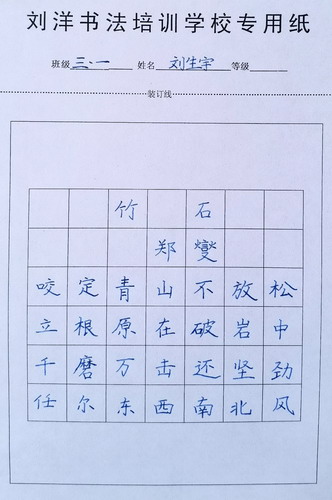 刘洋书法培训学校专用纸
班级 三.一 姓名 刘生宇 等级
装订线
竹 石
郑 燮
咬定青山不放松
立根原在破岩中
千磨万击还坚劲
任尔东西南北风